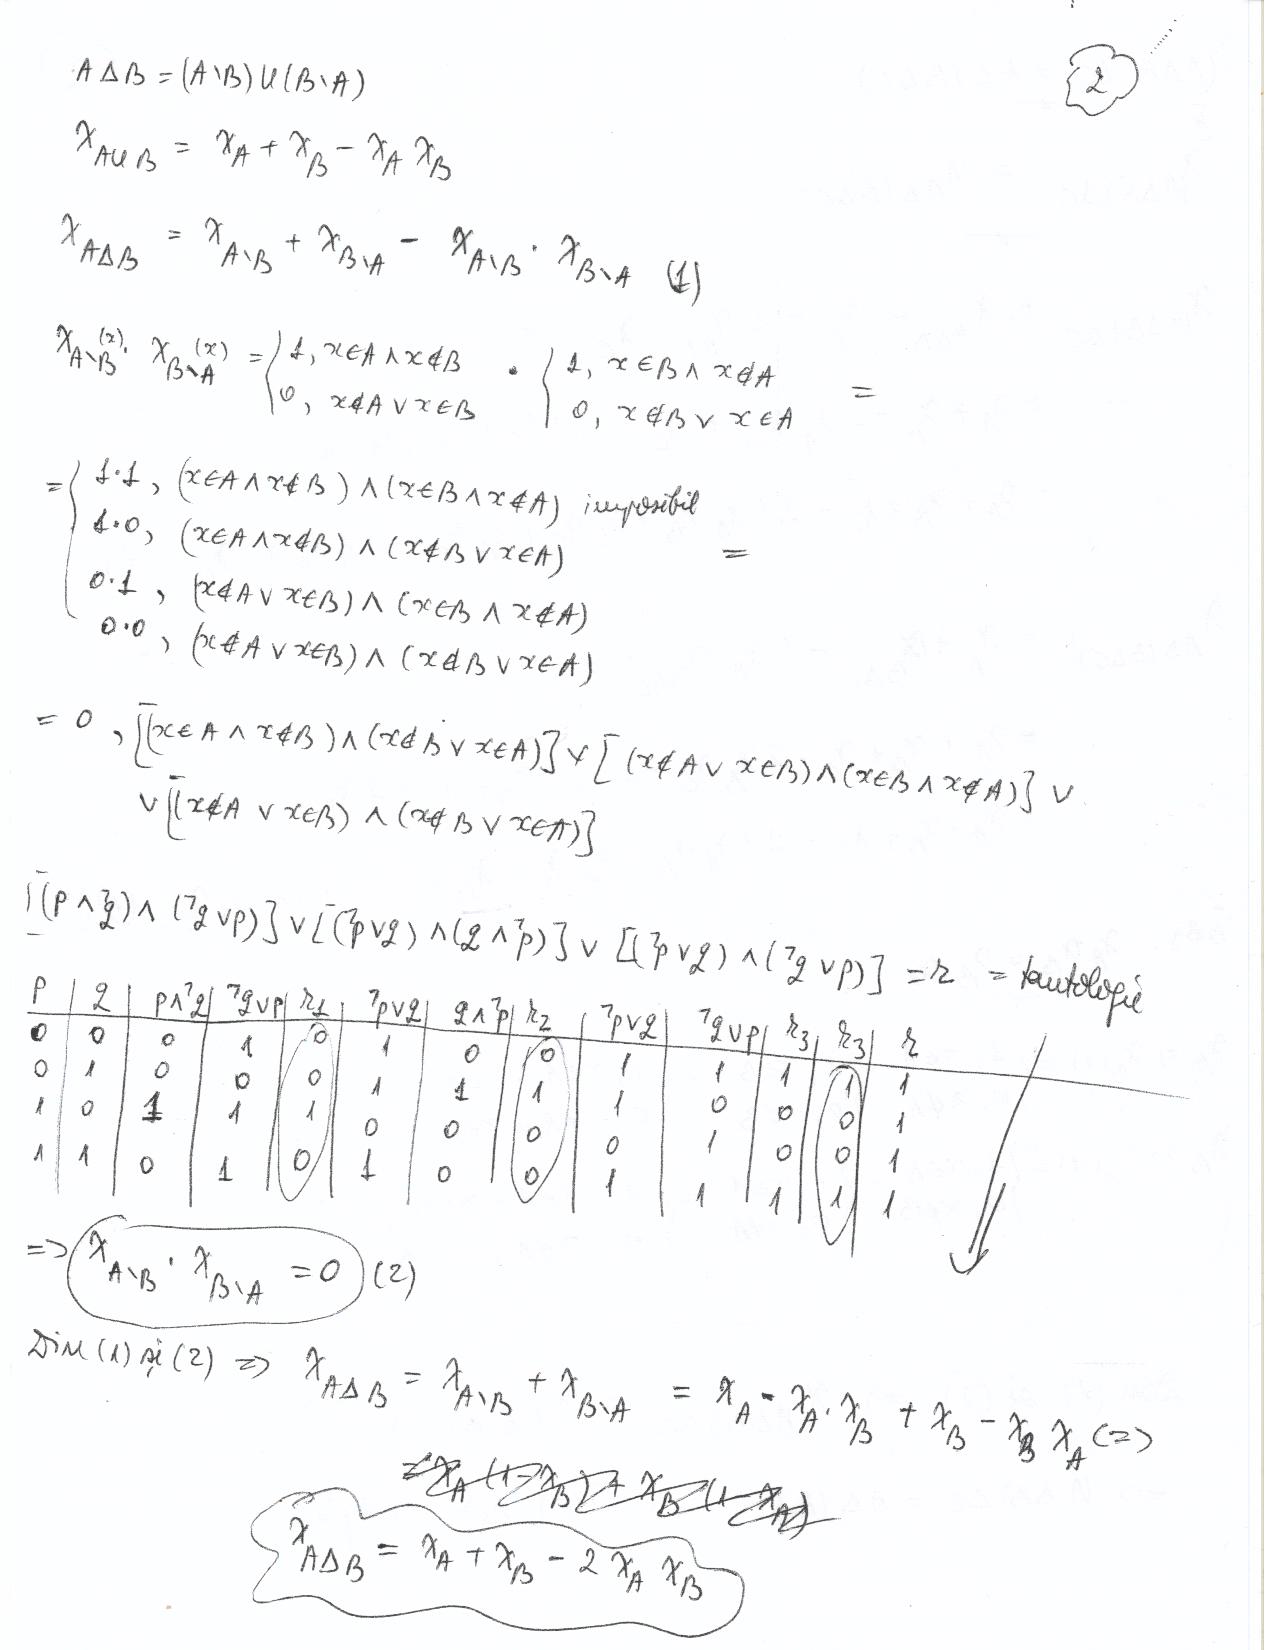 2
A Δ B = (A\B) ∪ (B\A)
χ_{A∪B} = χ_A + χ_B − χ_A χ_B
χ_{AΔB} = χ_{A\B} + χ_{B\A} − χ_{A\B} · χ_{B\A} (1)
χ_{A\B}(x) · χ_{B\A}(x) = { 1, x∈A ∧ x∉B · { 1, x∈B ∧ x∉A =
0, x∉A ∨ x∈B 0, x∉B ∨ x∈A
= { 1·1, (x∈A ∧ x∉B) ∧ (x∈B ∧ x∉A) imposibil
1·0, (x∈A ∧ x∉B) ∧ (x∉B ∨ x∈A) =
0·1, (x∉A ∨ x∈B) ∧ (x∈B ∧ x∉A)
0·0, (x∉A ∨ x∈B) ∧ (x∉B ∨ x∈A)
= 0, [(x∈A ∧ x∉B) ∧ (x∉B ∨ x∈A)] ∨ [(x∉A ∨ x∈B) ∧ (x∈B ∧ x∉A)] ∨
∨ [(x∉A ∨ x∈B) ∧ (x∉B ∨ x∈A)]
[(p ∧ ⁊q) ∧ (⁊q ∨ p)] ∨ [(⁊p ∨ q) ∧ (q ∧ ⁊p)] ∨ [(⁊p ∨ q) ∧ (⁊q ∨ p)] = r = tautologie
p | q | p∧⁊q | ⁊q∨p | r1 | ⁊p∨q | q∧⁊p | r2 | ⁊p∨q | ⁊q∨p | r3 | r3 | r
0 0 0 1 0 1 0 0 1 1 1 1 1
0 1 0 0 0 1 1 1 1 0 0 0 1
1 0 1 1 1 0 0 0 0 1 0 0 1
1 1 0 1 0 1 0 0 1 1 1 1 1
=> χ_{A\B} · χ_{B\A} = 0 (2)
Din (1) și (2) => χ_{AΔB} = χ_{A\B} + χ_{B\A} = χ_A − χ_A · χ_B + χ_B − χ_B χ_A (=>
= χ_A (1 − χ_B) + χ_B (1 − χ_A)
χ_{AΔB} = χ_A + χ_B − 2 χ_A χ_B